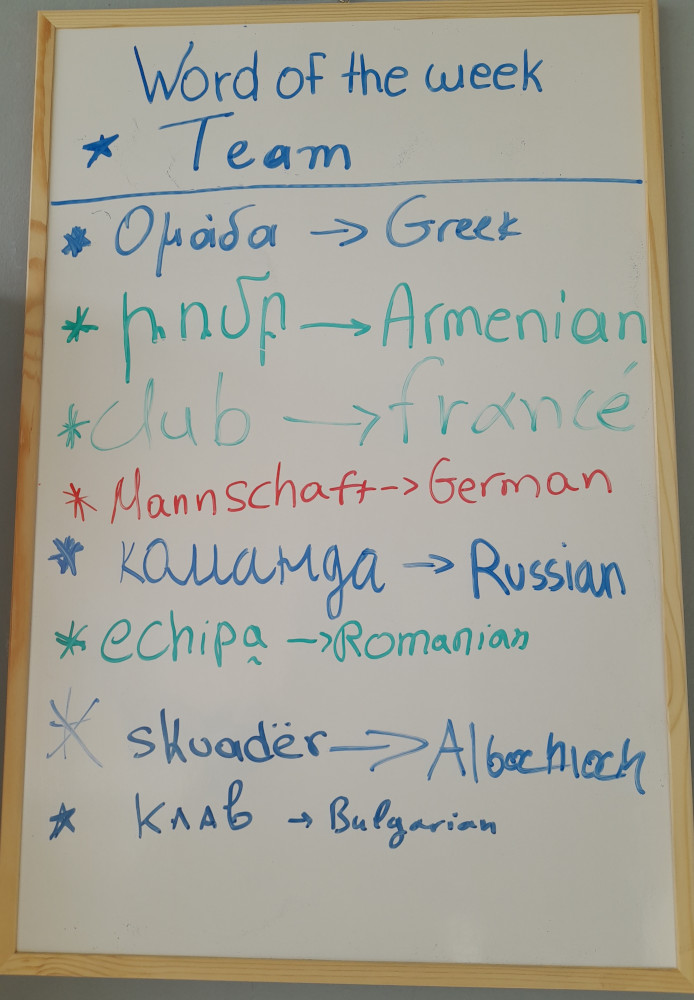 Word of the week
* Team
* Ομάδα → Greek
* → Armenian
* club → francé
* Mannschaft --> German
* команда → Russian
* echipą → Romanian
* skuadër → Albanian
* клав → Bulgarian